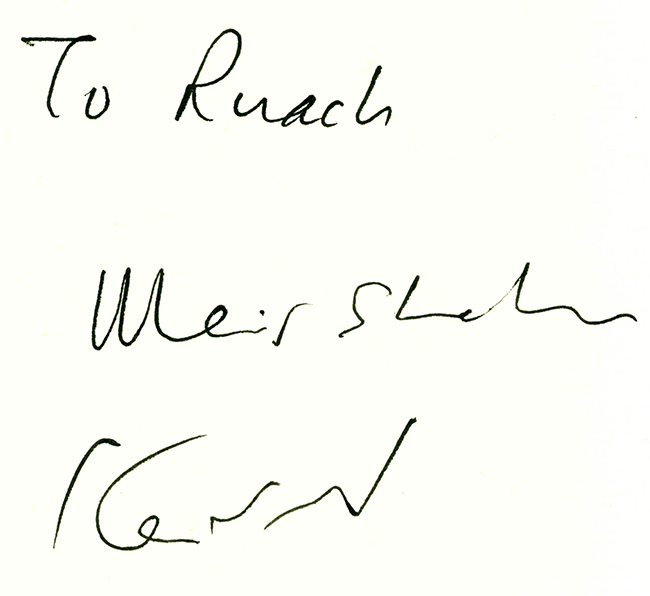 To Ruach
Meir Shahar